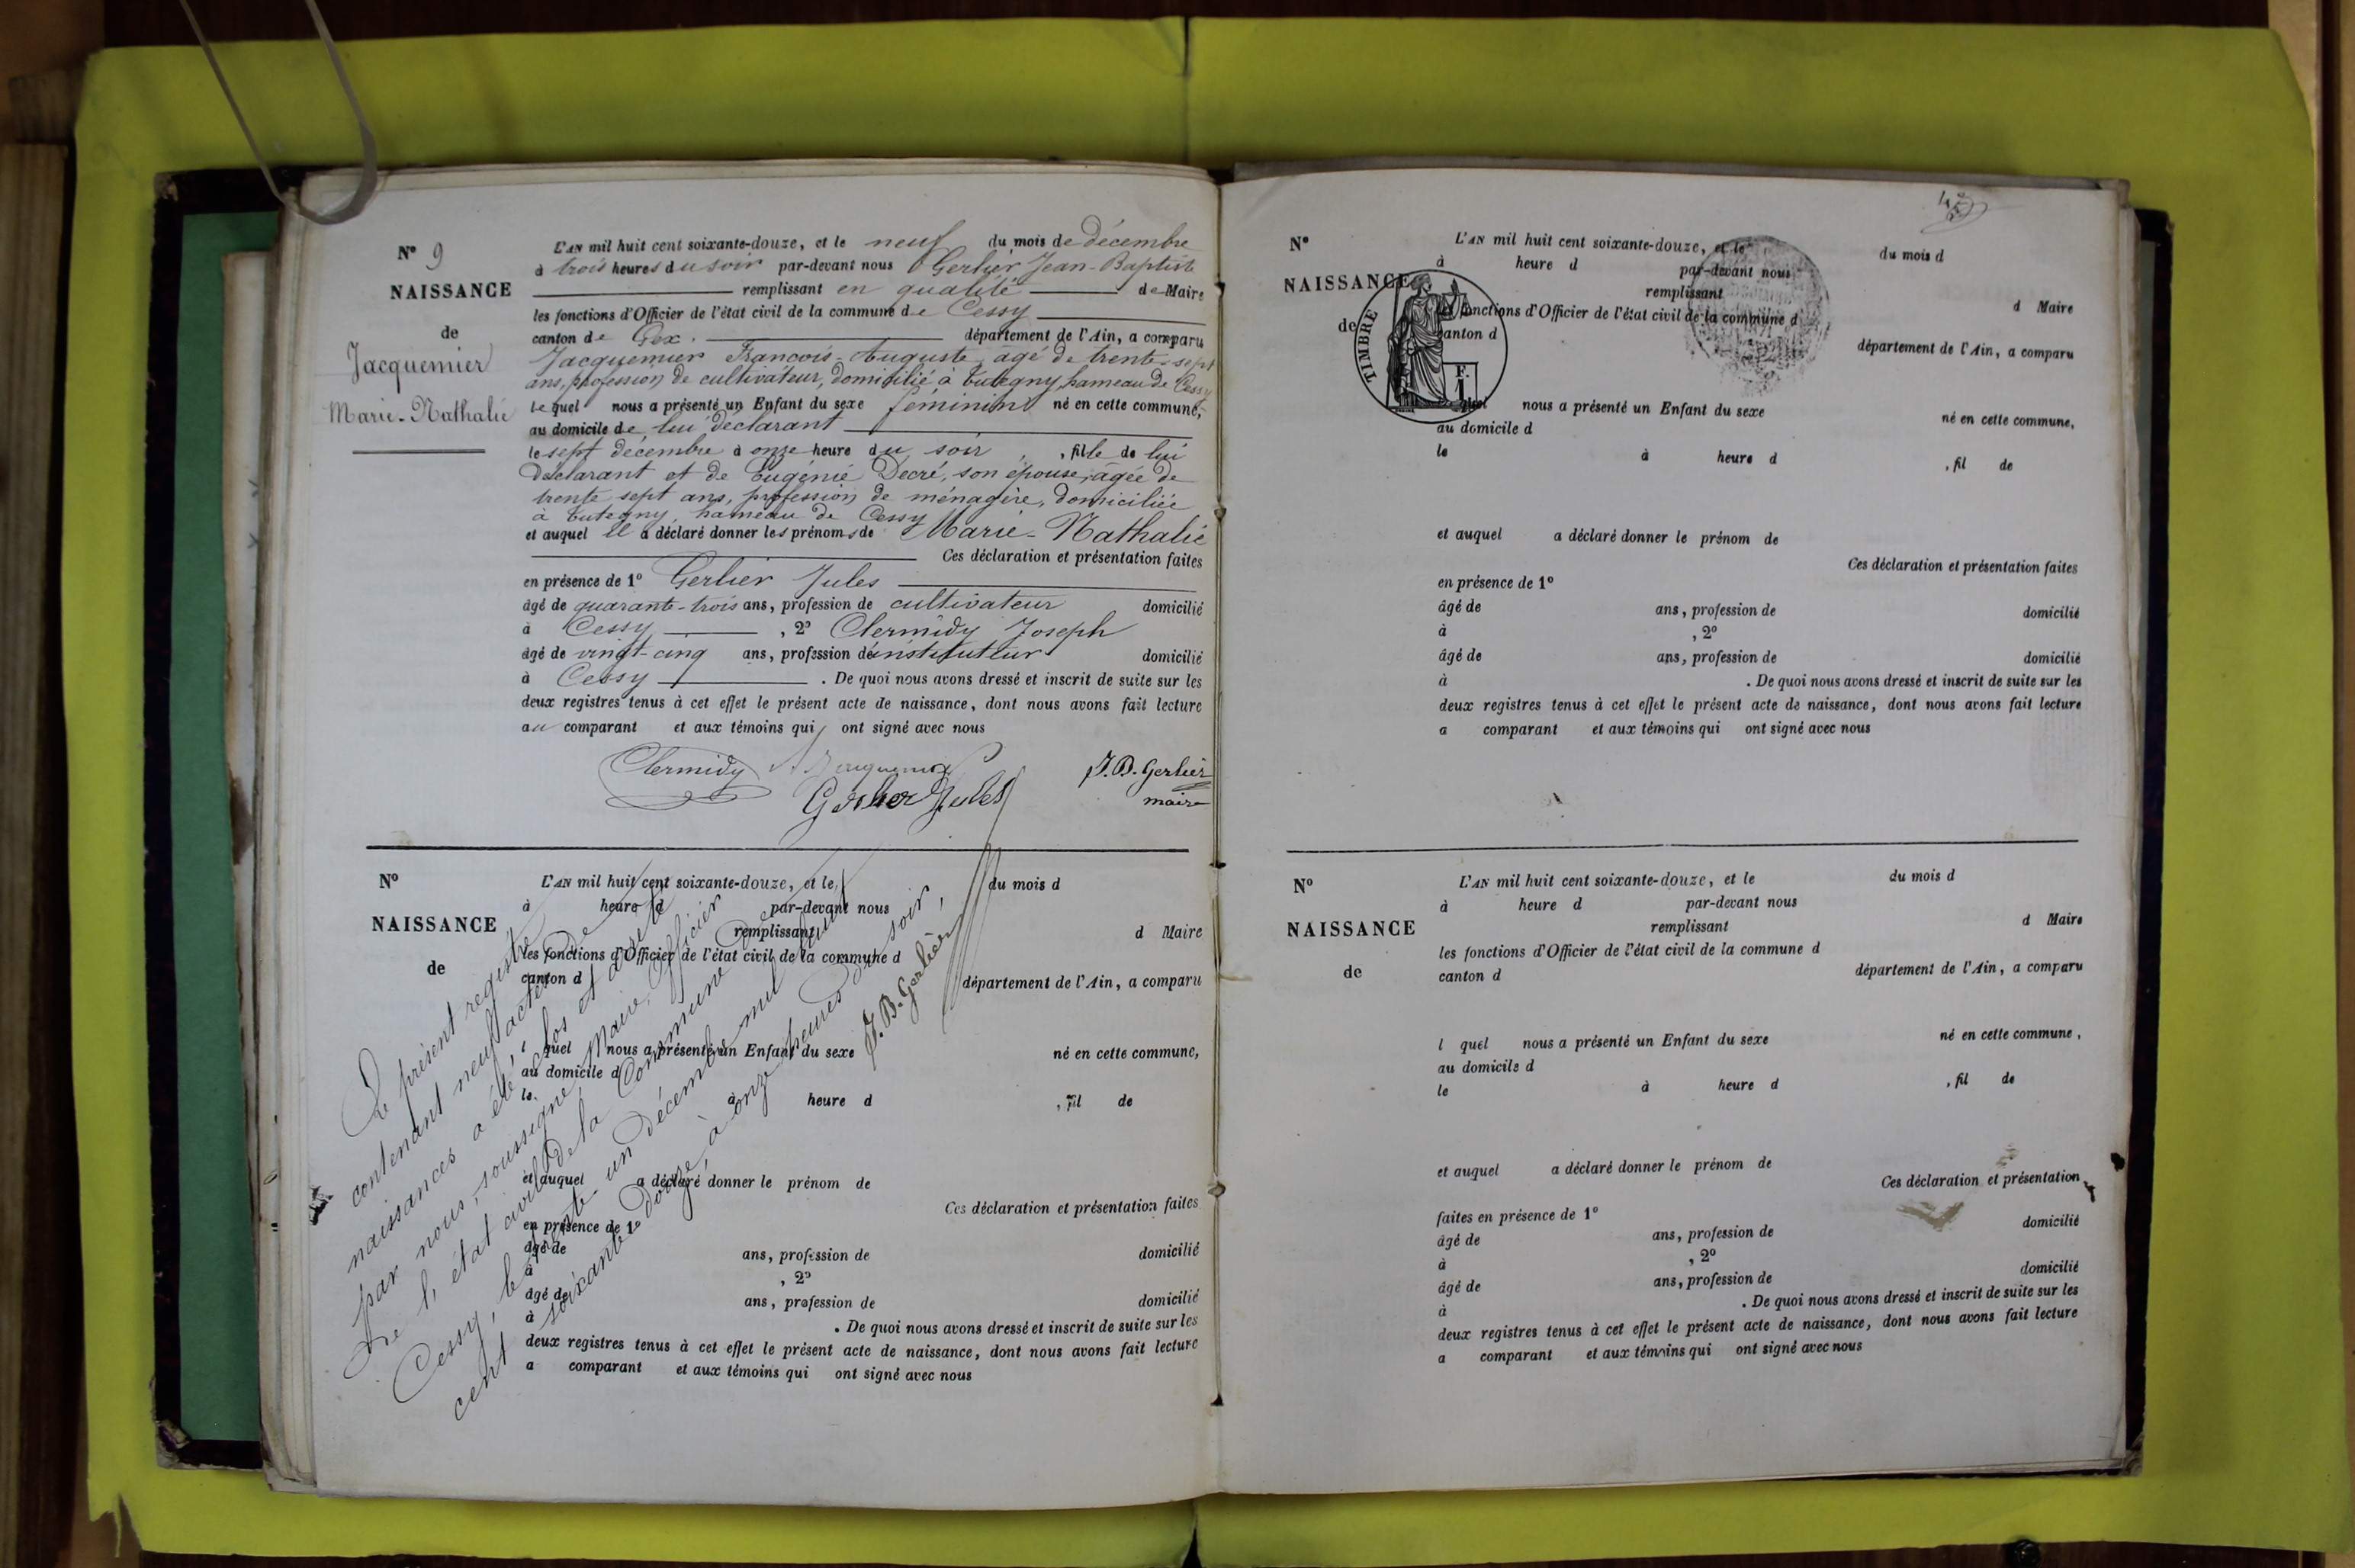 N° 9
NAISSANCE
de
Jacquemier
Marie-Nathalie
L'AN mil huit cent soixante-douze, et le neuf du mois de décembre
à trois heures du soir par-devant nous Gerlier Jean-Baptiste
remplissant en qualité de Maire
les fonctions d'Officier de l'état civil de la commune de Cessy
canton de Gex. département de l'Ain, a comparu
Jacquemier François-Auguste, âgé de trente-sept
ans, profession de cultivateur, domicilié à Tutegny, hameau de Cessy
lequel nous a présenté un Enfant du sexe féminin né en cette commune,
au domicile de lui déclarant
le sept décembre à onze heure du soir, fille de lui
Déclarant et de Eugénie Decré, son épouse, âgée de
trente sept ans, profession de ménagère, domiciliée
à Tutegny, hameau de Cessy
et auquel il a déclaré donner les prénoms de Marie-Nathalie
Ces déclaration et présentation faites
en présence de 1° Gerlier Jules
âgé de quarante-trois ans, profession de cultivateur domicilié
à Cessy, 2° Clermidy Joseph
âgé de vingt-cinq ans, profession de instituteur domicilié
à Cessy. De quoi nous avons dressé et inscrit de suite sur les
deux registres tenus à cet effet le présent acte de naissance, dont nous avons fait lecture
au comparant et aux témoins qui ont signé avec nous
Clermidy A Jacquemier J.B. Gerlier
Gerlier Jules maire
N°
NAISSANCE
de
L'AN mil huit cent soixante-douze, et le du mois d
à heure d par-devant nous
remplissant d Maire
les fonctions d'Officier de l'état civil de la commune d
canton d département de l'Ain, a comparu
l quel nous a présenté un Enfant du sexe né en cette commune,
au domicile d
le à heure d , fil de
et auquel a déclaré donner le prénom de
Ces déclaration et présentation faites
en présence de 1°
âgé de ans, profession de domicilié
à , 2°
âgé de ans, profession de domicilié
à . De quoi nous avons dressé et inscrit de suite sur les
deux registres tenus à cet effet le présent acte de naissance, dont nous avons fait lecture
a comparant et aux témoins qui ont signé avec nous
Le présent registre
contenant neuf actes de
naissances a été clos et arrêté
par nous, soussigné, Maire, Officier
de l'état civil de la Commune de
Cessy, le trente-un décembre mil huit
cent soixante-douze, à onze heures du soir,
J.B. Gerlier
N°
NAISSANCE
de
TIMBRE
F.
L'AN mil huit cent soixante-douze, et le du mois d
à heure d par-devant nous
remplissant d Maire
les fonctions d'Officier de l'état civil de la commune d
canton d département de l'Ain, a comparu
quel nous a présenté un Enfant du sexe né en cette commune,
au domicile d
le à heure d , fil de
et auquel a déclaré donner le prénom de
Ces déclaration et présentation faites
en présence de 1°
âgé de ans, profession de domicilié
à , 2°
âgé de ans, profession de domicilié
à . De quoi nous avons dressé et inscrit de suite sur les
deux registres tenus à cet effet le présent acte de naissance, dont nous avons fait lecture
a comparant et aux témoins qui ont signé avec nous
N°
NAISSANCE
de
L'AN mil huit cent soixante-douze, et le du mois d
à heure d par-devant nous
remplissant d Maire
les fonctions d'Officier de l'état civil de la commune d
canton d département de l'Ain, a comparu
l quel nous a présenté un Enfant du sexe né en cette commune,
au domicile d
le à heure d , fil de
et auquel a déclaré donner le prénom de
Ces déclaration et présentation
faites en présence de 1°
âgé de ans, profession de domicilié
à , 2°
âgé de ans, profession de domicilié
à . De quoi nous avons dressé et inscrit de suite sur les
deux registres tenus à cet effet le présent acte de naissance, dont nous avons fait lecture
a comparant et aux témoins qui ont signé avec nous